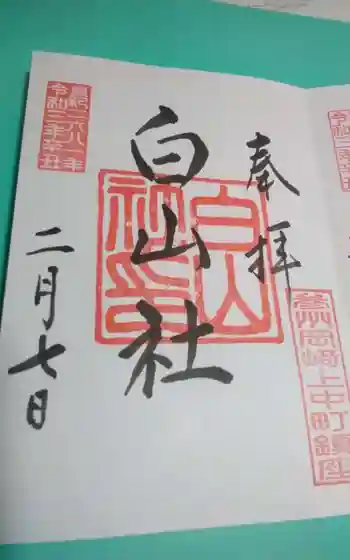 奉拝
岡崎上中町鎮座
白山社
白山社印
皇紀二六八一年
令和三年辛丑
二月七日